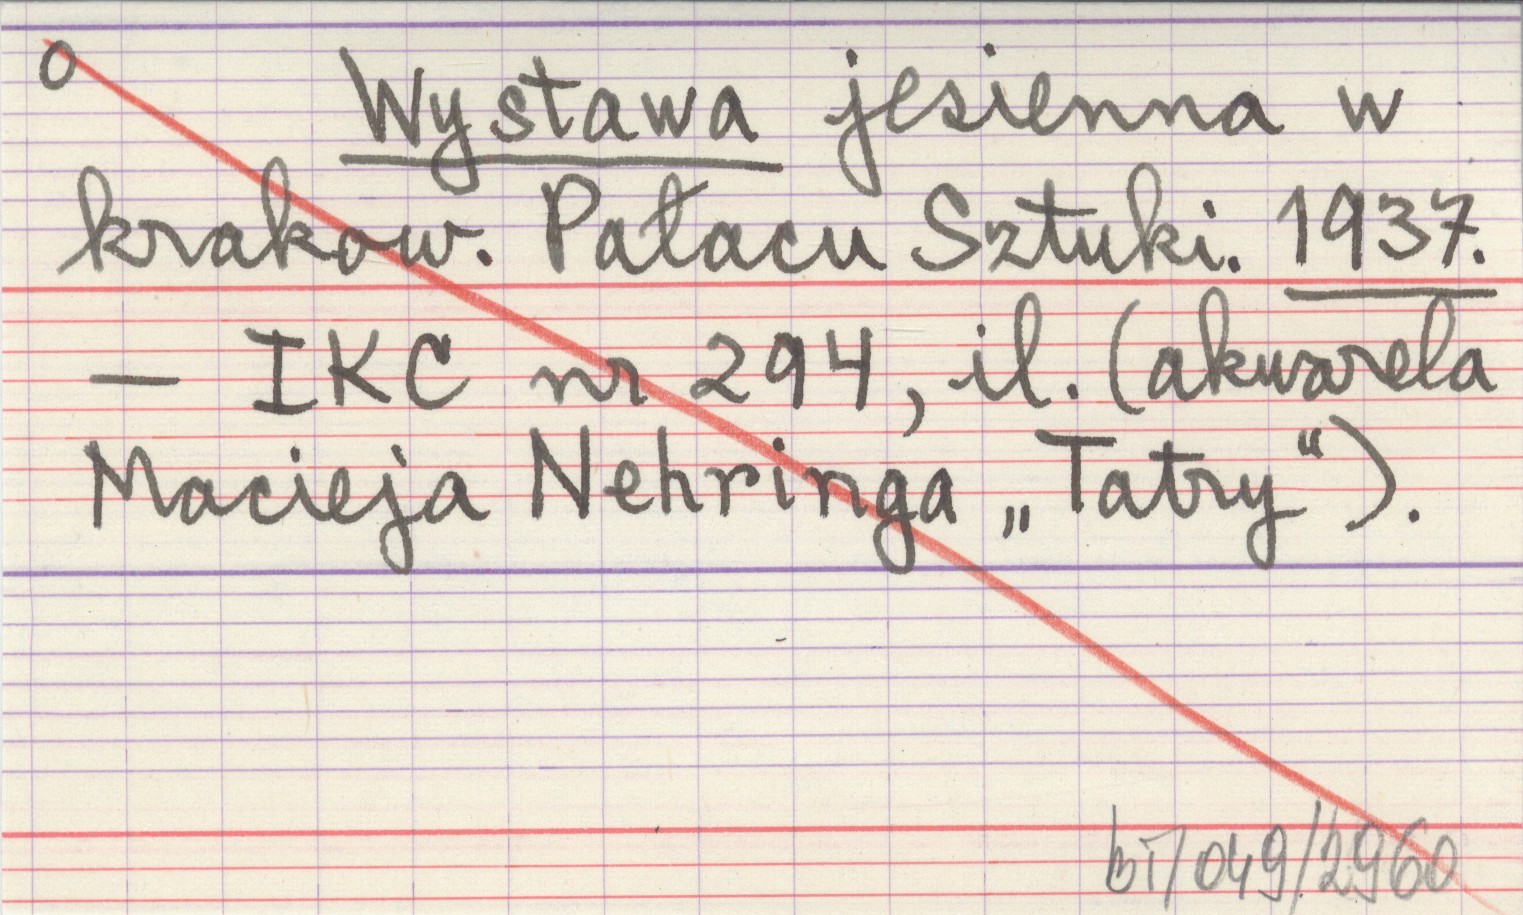 o Wystawa jesienna w
krakow. Pałacu Sztuki. 1937.
— IKC nr 294, il. (akwarela
Macieja Nehringa „Tatry“).
bT/049/2960